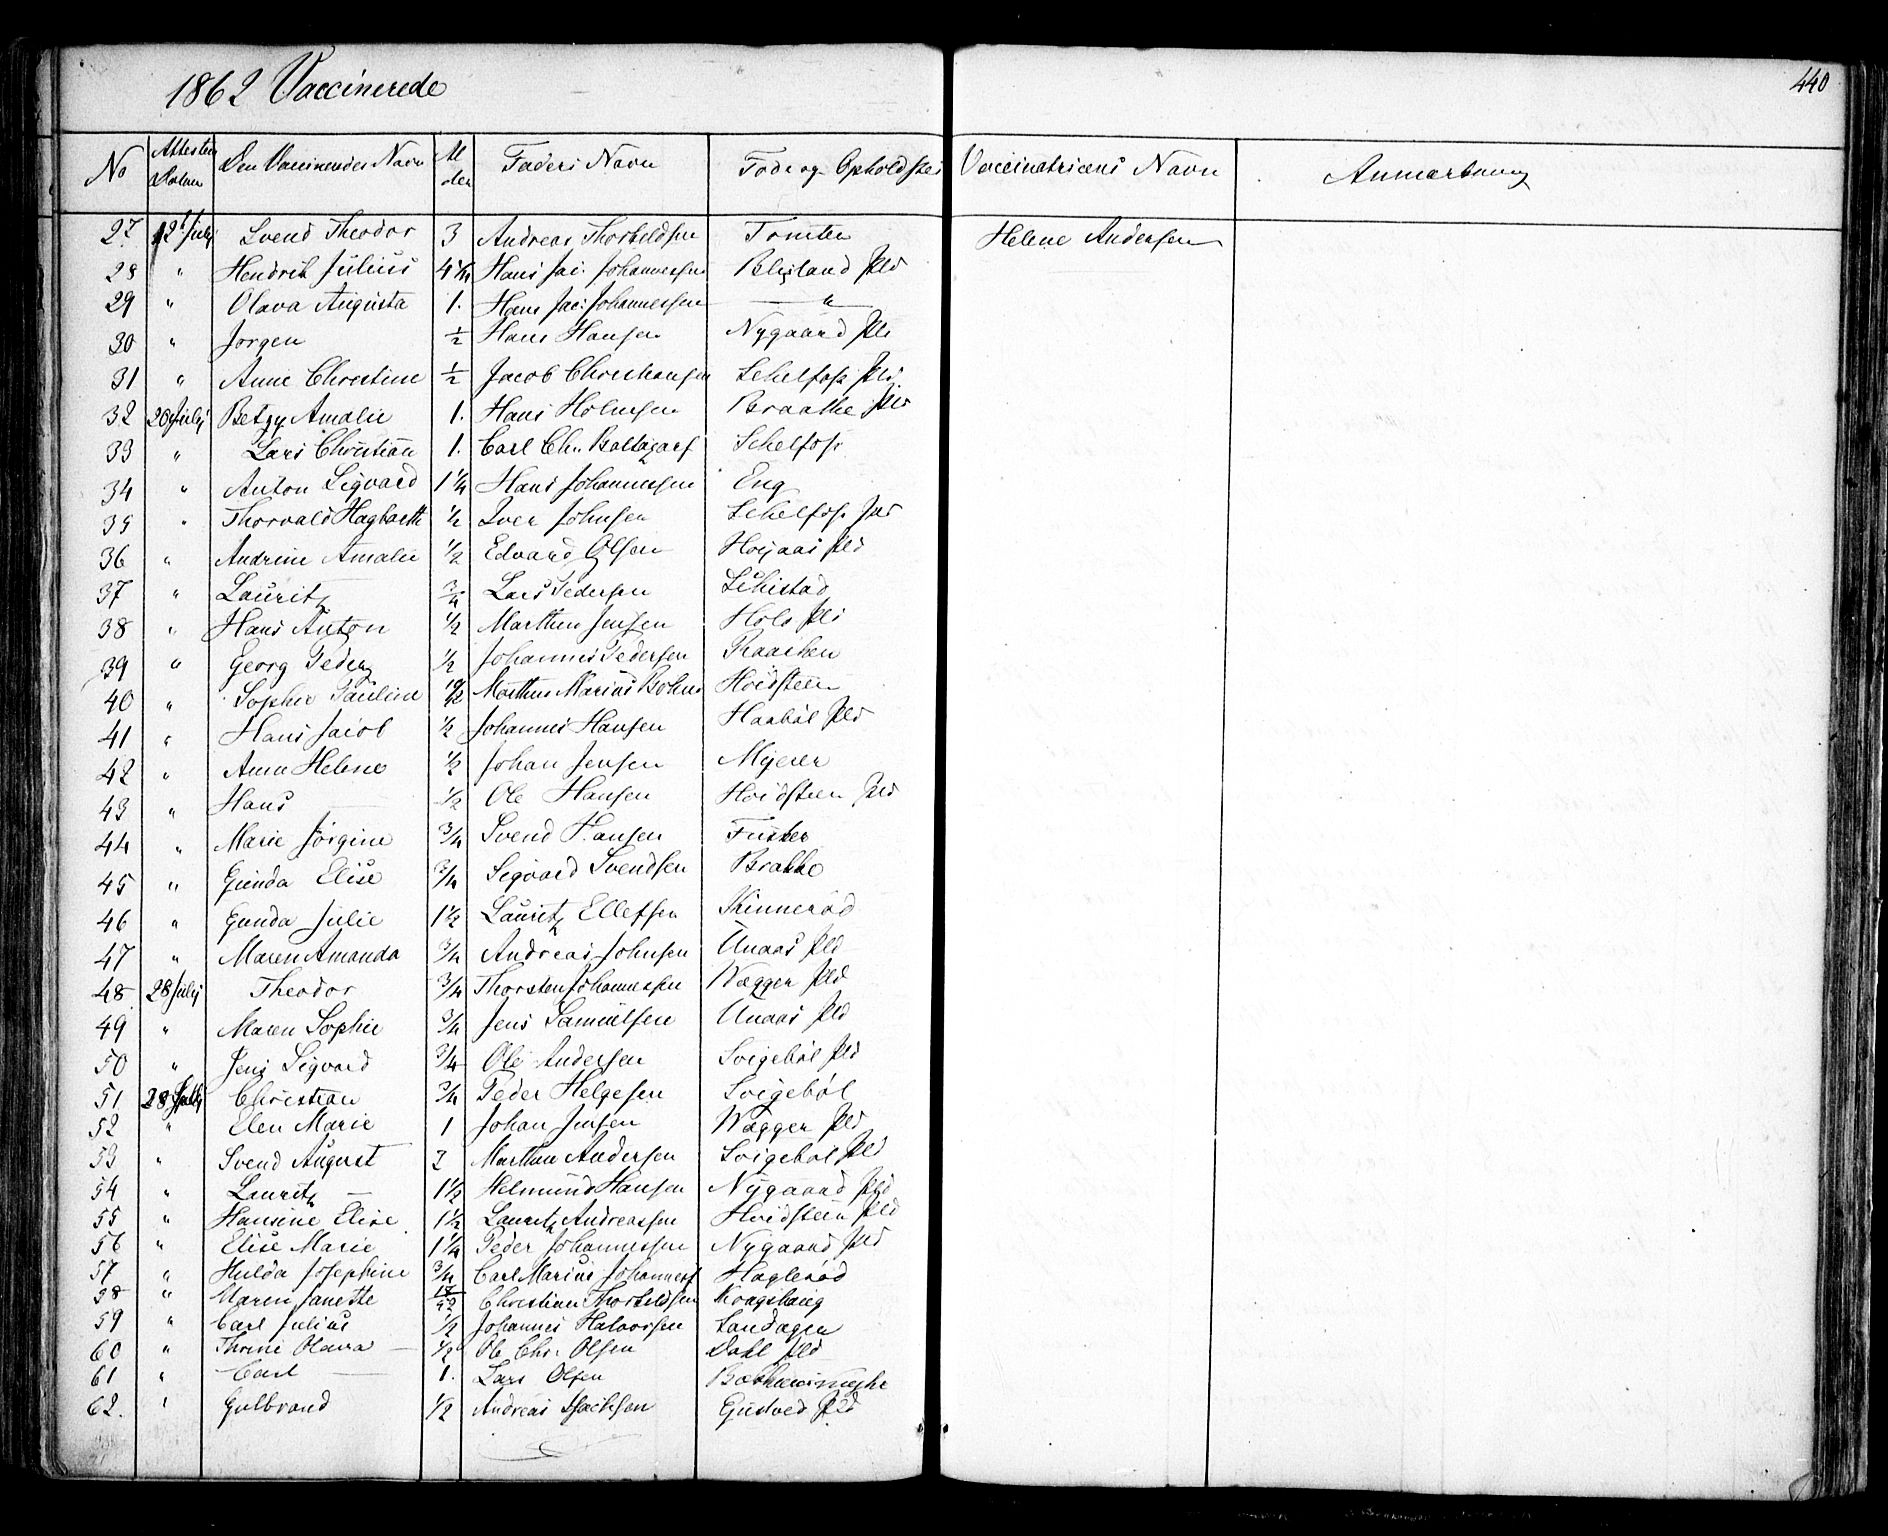 1862 Vaccinerede
440
No | Attestens Datum | Den Vaccineredes Navn | Alder | Faders Navn | Føde og Opholdsted | Vaccinatricens Navn | Anmærkning
27. | 12t July | Svend Theodor | 3 | Andreas Thorkeldsen | Tomten | Helene Andersen
28 | " | Hendrik Julius | 4 | Hans Jac: Johannessen | Blyland Pld
29 | " | Olava Augusta | 1. | Hans Jac: Johannessen | — " —
30 | " | Jørgen | 1/2 | Hans Hansen | Nygaard Pld
31 | " | Anne Christine | 1/2 | Jacob Christiansen | Schelfoss Pld.
32 | 20 July | Betzy Amalie | 1. | Hans Holmsen | Braathe Pld
33 | " | Lars Christian | 1. | Carl Chr. Baltazars | Schelfoss
34 | " | Anton Sigvard | 1 1/4 | Hans Johannessen | Eng
35 | " | Thorvald Hagbarth | 1/2 | Iver Johnsen | Schelfoss
36 | " | Andrine Amalie | 1/2 | Edvard Olsen | Høijaas Pld
37 | " | Lauritz | 3/4 | Lars Pedersen | Schistad
38 | " | Hans Anton | 1/2 | Marthin Jensen | Hols Pld
39 | " | Georg Peder | 1/2 | Johannes Pedersen | Raaeken
40 | " | Sophie Pauline | 10/12 | Marthin Marius Bohne | Hvidsteen
41 | " | Hans Jacob | 1/2 | Johannes Hansen | Haabøl Pld
42 | " | Anne Helene | 1/2 | Johan Jensen | Myerer
43 | " | Hans — | 1/2 | Ole Hansen | Hvidsteen Pld
44 | " | Marie Jørgine | 3/4 | Svend Hansen
45 | " | Gunda Elise | 3/4 | Sigvard Svendsen | Brakke
46 | " | Gunda Julie | 1 1/2 | Lauritz Ellefsen | Kinnerød
47 | " | Maren Amanda | 3/4 | Andreas Johnsen | Unaas Pld
48 | 28 July | Theodor | 3/4 | Thorsten Johannessen | Vægger Pld
49 | " | Maren Sophie | 3/4 | Jens Samuelsen | Unaas Pld
50 | " | Jens Sigvard | 3/4 | Ole Andersen | Svigebøl Pld
51 | 28 July | Christian | 3/4 | Peder Helgesen | Svigebøl
52 | " | Elen Marie | 1 | Johan Jensen | Vægger Pld
53 | " | Svend August | 2 | Marthin Andersen | Svigebøl Pld
54 | " | Lauritz — | 1 1/2 | Helmund Hansen | Nygaard Pld
55 | " | Hansine Elise | 1 1/2 | Lauritz Andreassen | Hvidsteen Pld
56 | " | Elise Marie | 1 1/4 | Peder Johannessen | Nygaard Pld
57 | " | Hulda Josephine | 3/4 | Carl Marius Johannesf | Haglerød
58 | " | Maren Janette | 18/52 | Christian Thorkeldsen | Krogshaug
59 | " | Carl Julius | 1/2 | Johannes Halvorsen | Sandagen
60 | " | Thrine Olava — | 1/2 | Ole Chr. Olsen | Dahl Pld
61 | " | Carl — | 1. | Lars Olsen
62. | " | Gulbrand | 1/2 | Andreas Isachsen | Gjedved Pld